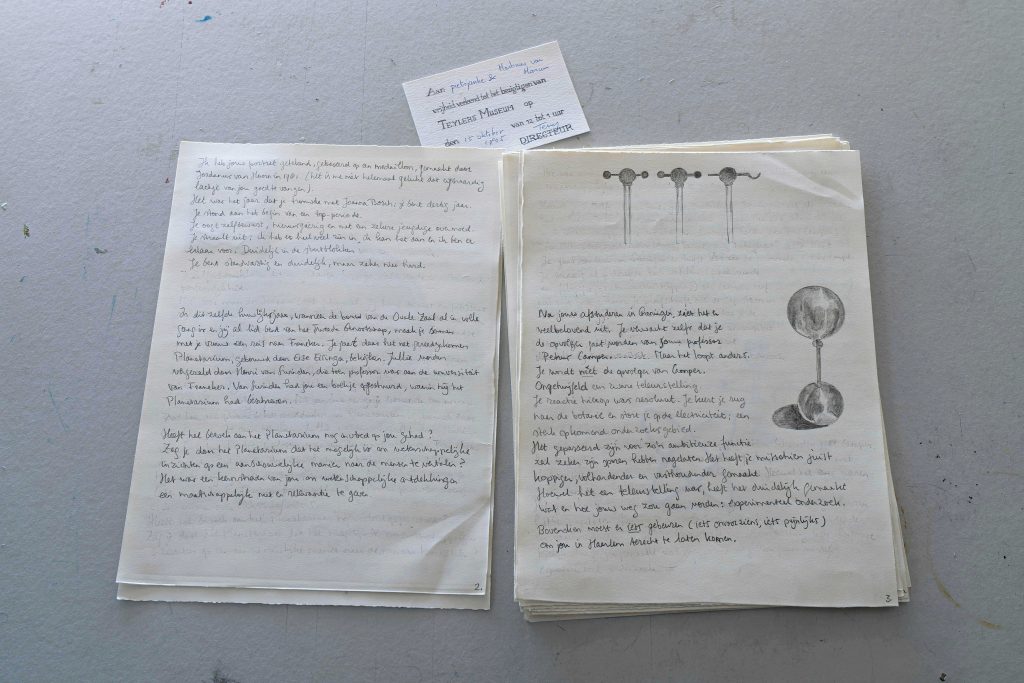 Aan pietsjanke & Martinus van Marum
vrijheid verleend tot het bezigtigen van
TEYLERS MUSEUM op
den 15 oktober 1995 van 12 tot 1 uur
DIRECTEUR
Ik heb jouw portret getekend, gebaseerd op een medaillon, gemaakt door
van Hoorn in 1781. (het is me niet helemaal gelukt dat eigenaardig
lachje van jou goed te vangen).
Het was het jaar dat je trouwde met Joanna Bosch; je bent dertig jaar.
Je stond aan het begin van een top-periode.
Je oogt zelfbewust, nieuwsgierig en met een zekere jeugdige overmoed.
Je straalt uit: ik heb er heel veel zin in, ik kan het aan en ik ben er
klaar voor. Duidelijk in de startblokken.
Je bent standvastig en duidelijk, maar zeker niet hard.
In dit zelfde huwelijksjaar, wanneer de bouw van de Ovale Zaal al in volle
gang is en jij al lid bent van het Tweede Genootschap, maak je samen
met je vrouw een reis naar Franeker. Je gaat daar het net gereedgekomen
Planetarium, gebouwd door Eise Eisinga, bekijken. Jullie worden
vergezeld door Henri van Swinden, die toen professor was aan de universiteit
van Franeker. Van Swinden had jou een boekje opgestuurd, waarin hij het
Planetarium had beschreven.
Heeft het bezoek aan het Planetarium nog invloed op jou gehad?
Zag je door het Planetarium dat het mogelijk is om wetenschappelijke
inzichten op een aanschouwelijke manier naar de mensen te vertalen?
Het was een levensthema van jou om wetenschappelijke ontdekkingen
een maatschappelijk nut en relevantie te geven
2.
Na jouw afstuderen in Groningen, ziet het er
veelbelovend uit. Je verwacht zelfs dat je
de opvolger gaat worden van jouw professor
Petrus Camper. Maar het loopt anders.
Je wordt niet de opvolger van Camper.
Ongetwijfeld een zware teleurstelling
Je reactie hierop was resoluut. Je keert je rug
naar de botanie en stort je op de electriciteit; een
sterk opkomend onderzoeksgebied.
Het gepasseerd zijn voor zo'n ambitieuze functie
zal zeker zijn sporen hebben nagelaten. Het heeft je misschien juist
koppiger, volhardender en vasthoudender gemaakt.
Hoewel het een teleurstelling was, heeft het duidelijk gemaakt
wat en hoe jouw weg zou gaan worden: experimenteel onderzoek.
Bovendien moest er iets gebeuren (iets onvoorziens, iets pijnlijks)
om jou in Haarlem terecht te laten komen.
3.